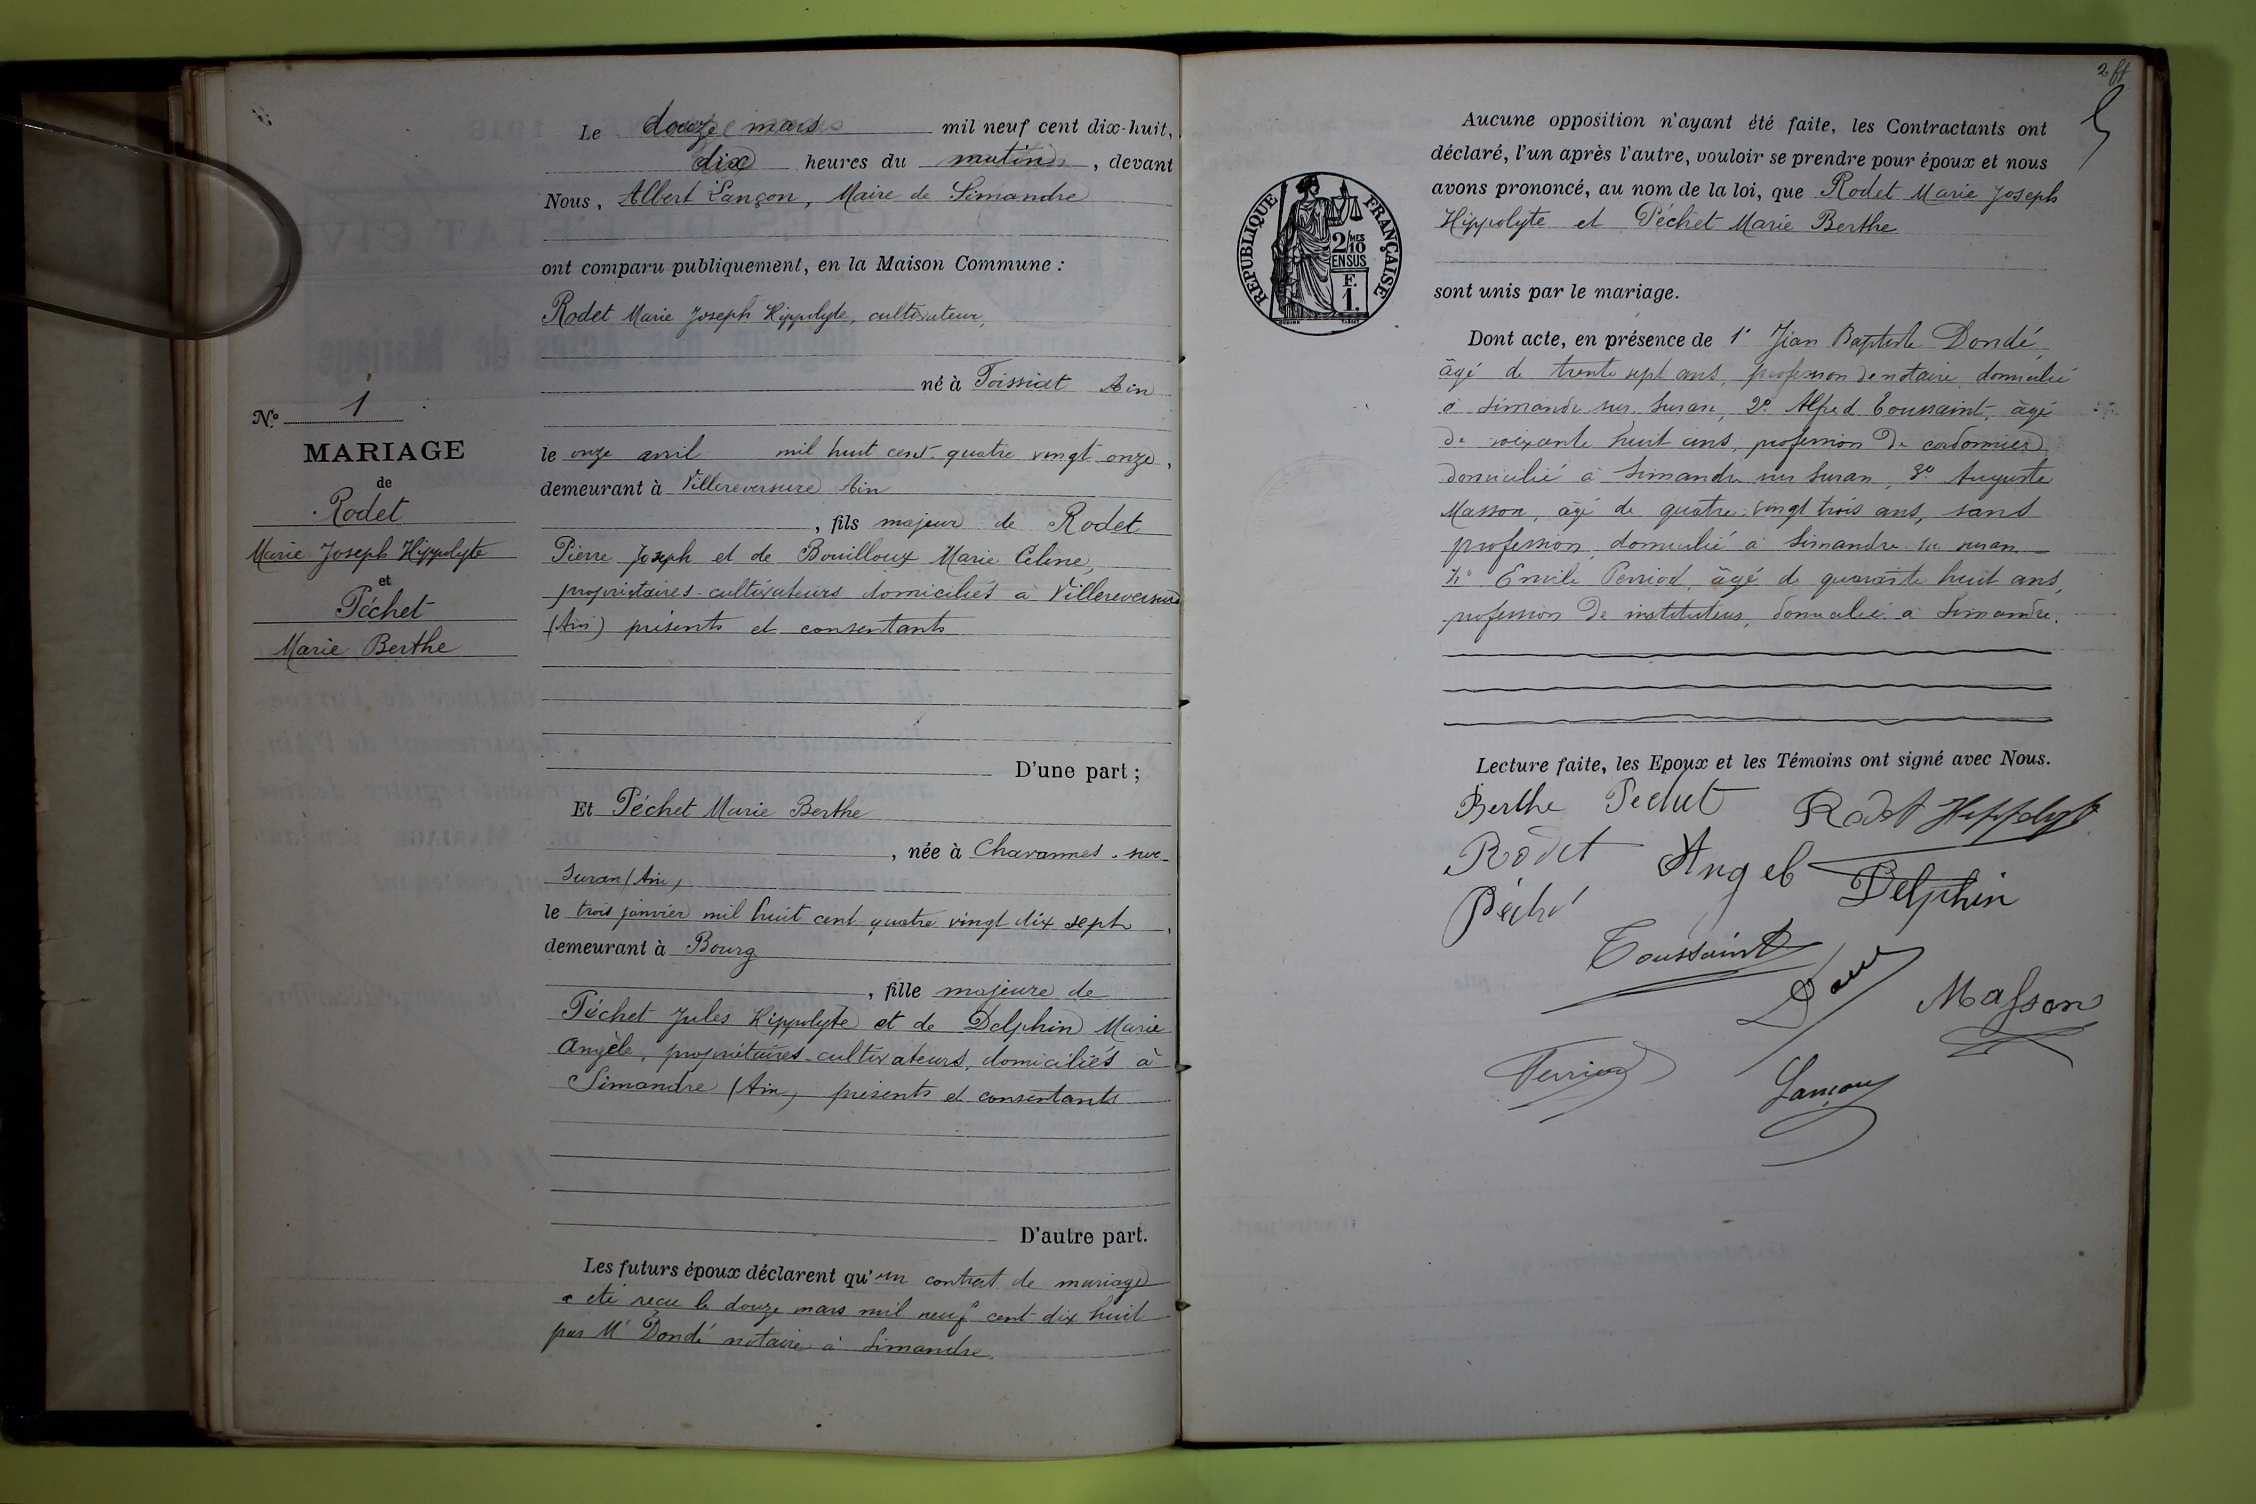 Le douze mars mil neuf cent dix-huit,
dix heures du matin, devant
Nous, Albert Lançon, Maire de Simandre
ont comparu publiquement, en la Maison Commune :
Rodet Marie Joseph Hippolyte, cultivateur,
né à Ain
le onze avril mil huit cent quatre vingt onze,
demeurant à Villereversure Ain
, fils majeur de Rodet
Pierre Joseph et de Bouilloux Marie Céline,
propriétaires-cultivateurs domiciliés à Villereversure
(Ain) présents et consentants
D'une part ;
N° 1
MARIAGE
de
Rodet
Marie Joseph Hippolyte
et
Péchet
Marie Berthe
Et Péchet Marie Berthe
, née à Chavannes-sur-
Suran (Ain)
le trois janvier mil huit cent quatre vingt dix sept,
demeurant à Bourg
, fille majeure de
Péchet Jules Hippolyte et de Delphin Marie
Angèle, propriétaires-cultivateurs, domiciliés à
Simandre (Ain) présents et consentants
D'autre part.
Les futurs époux déclarent qu'un contrat de mariage
a été reçu le douze mars mil neuf cent dix huit
par Me Dondé notaire à Simandre.
2
Aucune opposition n'ayant été faite, les Contractants ont
déclaré, l'un après l'autre, vouloir se prendre pour époux et nous
avons prononcé, au nom de la loi, que Rodet Marie Joseph
Hippolyte et Péchet Marie Berthe
sont unis par le mariage.
REPUBLIQUE FRANÇAISE
2/10 MES
EN SUS
F.
1.
Dont acte, en présence de 1° Jean Baptiste Dondé,
âgé de trente sept ans, profession de notaire, domicilié
à Simandre sur Suran, 2° Alfred Toussaint, âgé
de soixante huit ans, profession de cordonnier
domicilié à Simandre sur Suran, 3° Auguste
Masson, âgé de quatre-vingt trois ans, sans
profession, domicilié à Simandre sur Suran
4° Emile Perriod, âgé de quarante huit ans,
profession de instituteur, domicilié à Simandre.
Lecture faite, les Epoux et les Témoins ont signé avec Nous.
Berthe Pechet Rodet Hippolyte
Rodet Angel Delphin
Péchet
Toussaint
Masson
Perriod
Lançon